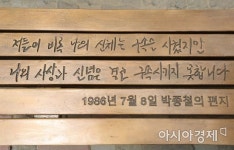 저들이 비록 나의 신체는 구속은 시켰지만
나의 사상과 신념은 결코 구속시키지 못합니다
1986년 7월 8일 박종철의 편지
아시아경제